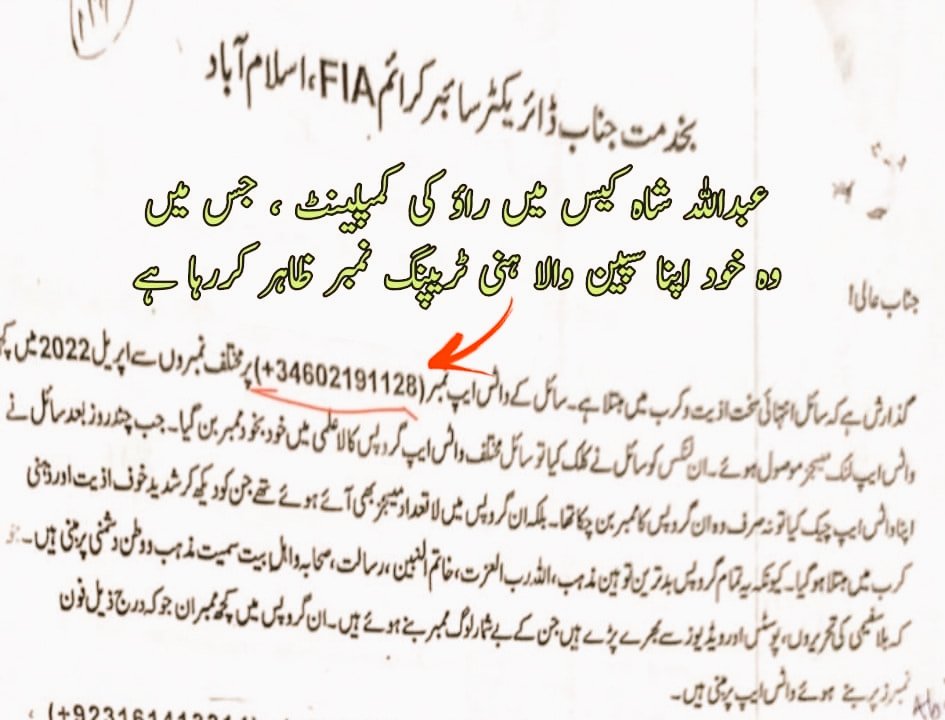 بخدمت جناب ڈائریکٹر سائبر کرائم FIA، اسلام آباد
عبداللہ شاہ کیس میں راؤ کی کمپلینٹ ، جس میں
وہ خود اپنا سپین والا ہنی ٹریپنگ نمبر ظاہر کررہا ہے
جناب عالی!
گذارش ہے کہ سائل انتہائی سخت اذیت و کرب میں مبتلا ہے۔ سائل کے واٹس ایپ نمبر (+34602191128) پر مختلف نمبروں سے اپریل 2022 میں کچھ
واٹس ایپ لنک میسجز موصول ہوئے۔ ان لنکس کو سائل نے کلک کیا تو سائل مختلف واٹس ایپ گروپس کا لاعلمی میں خودبخود ممبر بن گیا۔ جب چند روز بعد سائل نے
اپنا واٹس ایپ چیک کیا تو نہ صرف وہ ان گروپس کا ممبر بن چکا تھا۔ بلکہ ان گروپس میں لاتعداد میسجز بھی آئے ہوئے تھے جن کو دیکھ کر شدید خوف اذیت اور ذہنی
کرب میں مبتلا ہو گیا۔ کیونکہ یہ تمام گروپس بدترین توہین مذہب، اللہ رب العزت، خاتم النبین، رسالت، صحابہ و اہل بیت سمیت مذہب و وطن دشمنی پر مبنی ہیں۔ جو
کہ بلاسفیمی کی تحریروں، پوسٹس اور ویڈیوز سے بھرے پڑے ہیں جن کے بے شمار لوگ ممبر بنے ہوئے ہیں۔ ان گروپس میں کچھ ممبران جو کہ درج ذیل فون
نمبرز پر بنے ہوئے واٹس ایپ پر مبنی ہیں۔